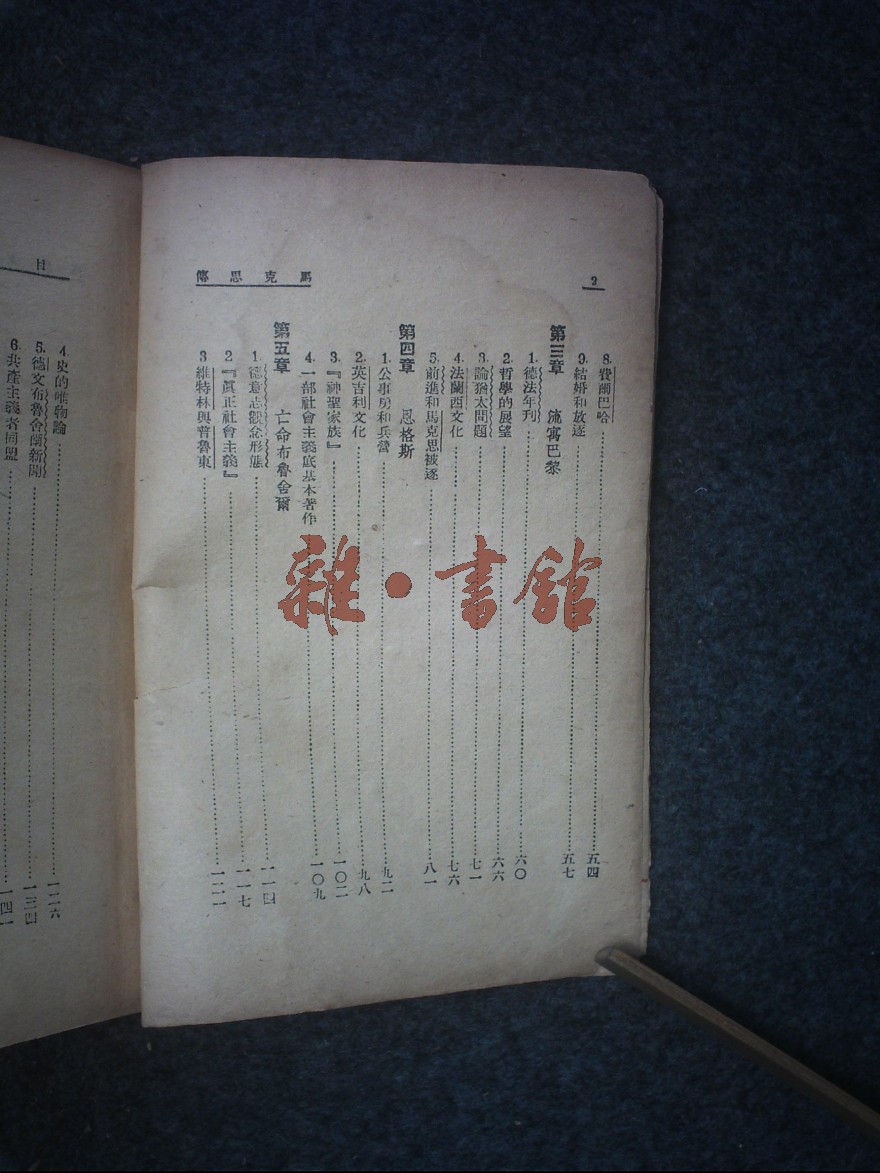 馬克思傳
2
8. 費爾巴哈……五四
9. 結婚和放逐……五七
第三章 流寓巴黎
1. 德法年刊……六〇
2. 哲學的展望……六六
3. 論猶太問題……七一
4. 法蘭西文化……七六
5. 前進和馬克思被逐……八一
第四章 恩格斯
1. 公事房和兵營……九二
2. 英吉利文化……九八
3. 『神聖家族』……一〇二
4. 一部社會主義底基本著作……一〇九
第五章 亡命布魯舍爾
1. 德意志觀念形態……一一四
2. 『眞正社會主義』……一一七
3. 維特林與普魯東……一二一
目
4. 史的唯物論……一二六
5. 德文布魯舍爾新聞……一三四
6. 共產主義者同盟……一四一
雜·書館